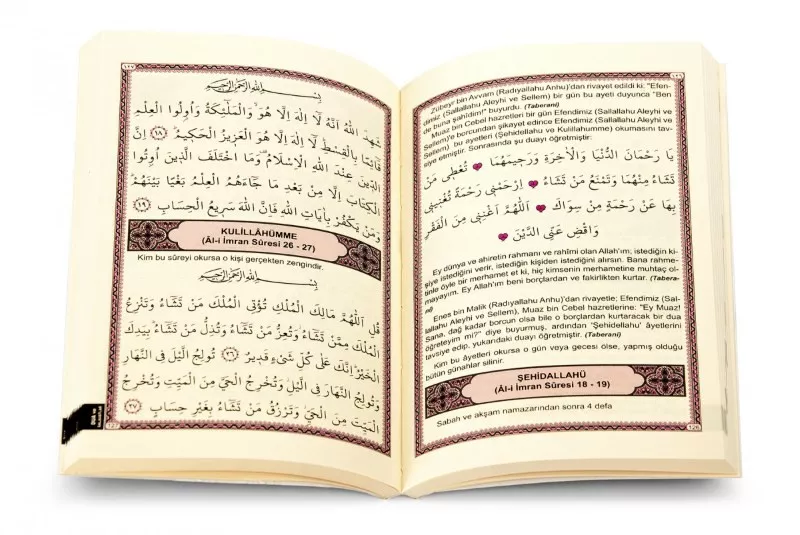 ١٢٦
Zübeyr bin Avvam (Radıyallahu Anhu)'dan rivayet edildi ki: "Efen-
dimiz (Sallallahu Aleyhi ve Sellem) bir gün bu ayeti duyunca "Ben
de buna şahidim!" buyurdu. (Taberani)
Muaz bin Cebel hazretleri bir gün Efendimiz (Sallallahu Aleyhi ve
Sellem)'e borcundan şikayet edince Efendimiz (Sallallahu Aleyhi ve
Sellem) bu ayetleri (Şehidellahu ve Kulillahumme) okumasını tav-
siye etmiştir. Sonrasında şu duayı öğretmiştir:
يَا رَحْمَانَ الدُّنْيَا وَالْاٰخِرَةِ وَرَحِيمَهُمَا تُعْطِى مَنْ
تَشَاءُ مِنْهُمَا وَتَمْنَعُ مَنْ تَشَاءُ اِرْحَمْنِى رَحْمَةً تُغْنِينِى
بِهَا عَنْ رَحْمَةِ مَنْ سِوَاكَ اَللّٰهُمَّ اَغْنِنِى مِنَ الْفَقْرِ
وَاقْضِ عَنِّى الدَّيْنَ
Ey dünya ve ahiretin rahmanı ve rahîmi olan Allah'ım; istediğin ki-
şiye istediğini verir, istediğin kişiden istediğini alırsın. Bana rahme-
tinle öyle bir merhamet et ki, hiç kimsenin merhametine muhtaç ol-
mayayım. Ey Allah'ım beni borçlardan ve fakirlikten kurtar. (Tabera-
ni)
Enes bin Malik (Radıyallahu Anhu)'dan rivayetle; Efendimiz (Sal-
lallahu Aleyhi ve Sellem), Muaz bin Cebel hazretlerine: "Ey Muaz!
Sana, dağ kadar borcun olsa bile o borçlardan kurtaracak bir dua
öğreteyim mi?" diye buyurmuş, ardından 'Şehidellahu' âyetlerini
tavsiye edip, yukarıdaki duayı öğretmiştir. (Taberani)
Kim bu âyetleri okursa o gün veya gecesi ölse, yapmış olduğu
bütün günahlar silinir.
ŞEHİDALLAHÜ
(Âl-i İmran Sûresi 18 - 19)
Sabah ve akşam namazarından sonra 4 defa
126
١٢٧
بِسْمِ اللّٰهِ الرَّحْمٰنِ الرَّحِيمِ
شَهِدَ اللّٰهُ اَنَّهُ لَا اِلٰهَ اِلَّا هُوَ وَالْمَلٰٓئِكَةُ وَاُولُوا الْعِلْمِ
قَائِمًا بِالْقِسْطِ لَا اِلٰهَ اِلَّا هُوَ الْعَزِيزُ الْحَكِيمُ ﴿١٨﴾ اِنَّ
الدّ۪ينَ عِنْدَ اللّٰهِ الْاِسْلَامُ وَمَا اخْتَلَفَ الَّذ۪ينَ اُوتُوا
الْكِتَابَ اِلَّا مِنْ بَعْدِ مَا جَاءَهُمُ الْعِلْمُ بَغْيًا بَيْنَهُمْ
وَمَنْ يَكْفُرْ بِاٰيَاتِ اللّٰهِ فَاِنَّ اللّٰهَ سَر۪يعُ الْحِسَابِ ﴿١٩﴾
KULİLLÂHÜMME
(Âl-i İmran Sûresi 26 - 27)
Kim bu sûreyi okursa o kişi gerçekten zengindir.
بِسْمِ اللّٰهِ الرَّحْمٰنِ الرَّحِيمِ
قُلِ اللّٰهُمَّ مَالِكَ الْمُلْكِ تُؤْتِى الْمُلْكَ مَنْ تَشَاءُ وَتَنْزِعُ
الْمُلْكَ مِمَّنْ تَشَاءُ وَتُعِزُّ مَنْ تَشَاءُ وَتُذِلُّ مَنْ تَشَاءُ بِيَدِكَ
الْخَيْرُ اِنَّكَ عَلٰى كُلِّ شَىْءٍ قَد۪يرٌ ﴿٢٦﴾ تُولِجُ الَّيْلَ فِى النَّهَارِ
وَتُولِجُ النَّهَارَ فِى الَّيْلِ وَتُخْرِجُ الْحَىَّ مِنَ الْمَيِّتِ وَتُخْرِجُ
الْمَيِّتَ مِنَ الْحَىِّ وَتَرْزُقُ مَنْ تَشَاءُ بِغَيْرِ حِسَابٍ ﴿٢٧﴾
127